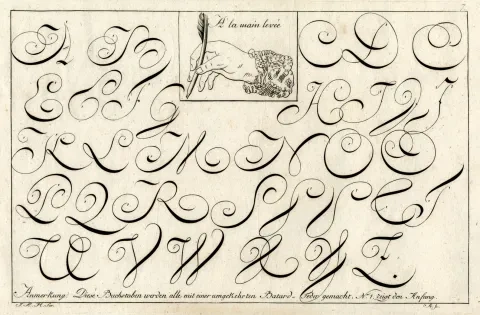 A la main levée
A B C D C
E F G H I J
K L M N O O
P Q R S T
U V W X Y Z.
Anmerkung. Diese Buchstaben werden alle mit einer umgekehrten Batard Feder gemacht. No. 1. zeigt den Anfang.